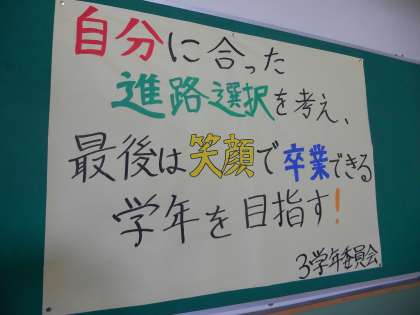 自分に合った
進路選択を考え、
最後は笑顔で卒業できる
学年を目指す!
3学年委員会